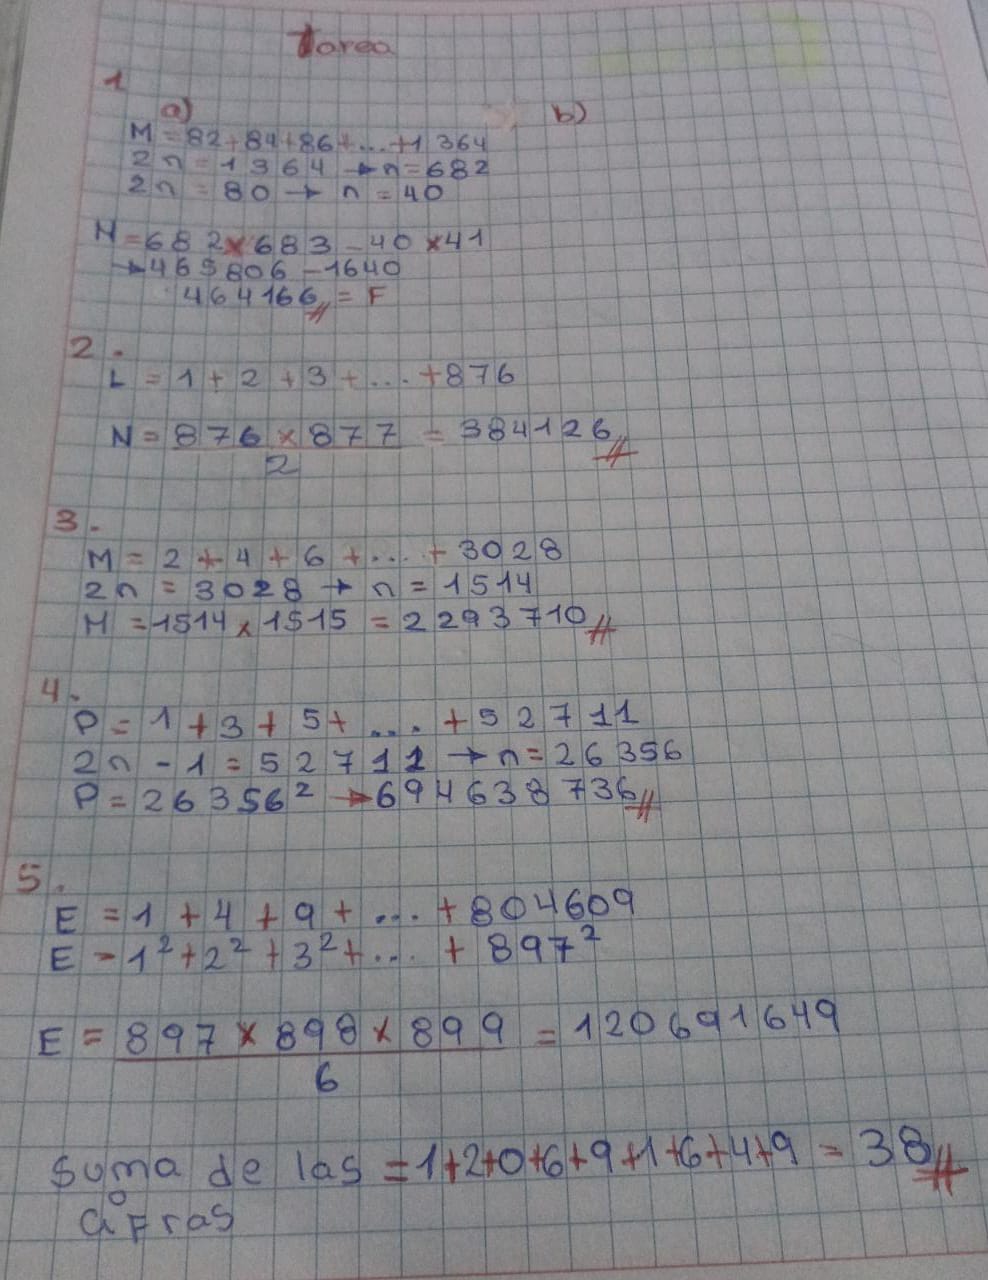 Tarea
1
a) b)
M = 82 + 84 + 86 + ... + 1 364
2n = 1 364 → n = 682
2n = 80 → n = 40
M = 682 x 683 - 40 x 41
→ 465 806 - 1640
464 166 = F
2.
L = 1 + 2 + 3 + ... + 876
N = 876 x 877 = 384126
2
3.
M = 2 + 4 + 6 + ... + 3028
2n = 3028 → n = 1514
M = 1514 x 1515 = 2293710
4.
P = 1 + 3 + 5 + ... + 52711
2n - 1 = 52711 → n = 26356
P = 26356² → 694638736
5.
E = 1 + 4 + 9 + ... + 804609
E = 1² + 2² + 3² + ... + 897²
E = 897 x 898 x 899 = 120691649
6
Suma de las = 1+2+0+6+9+1+6+4+9 = 38
cifras